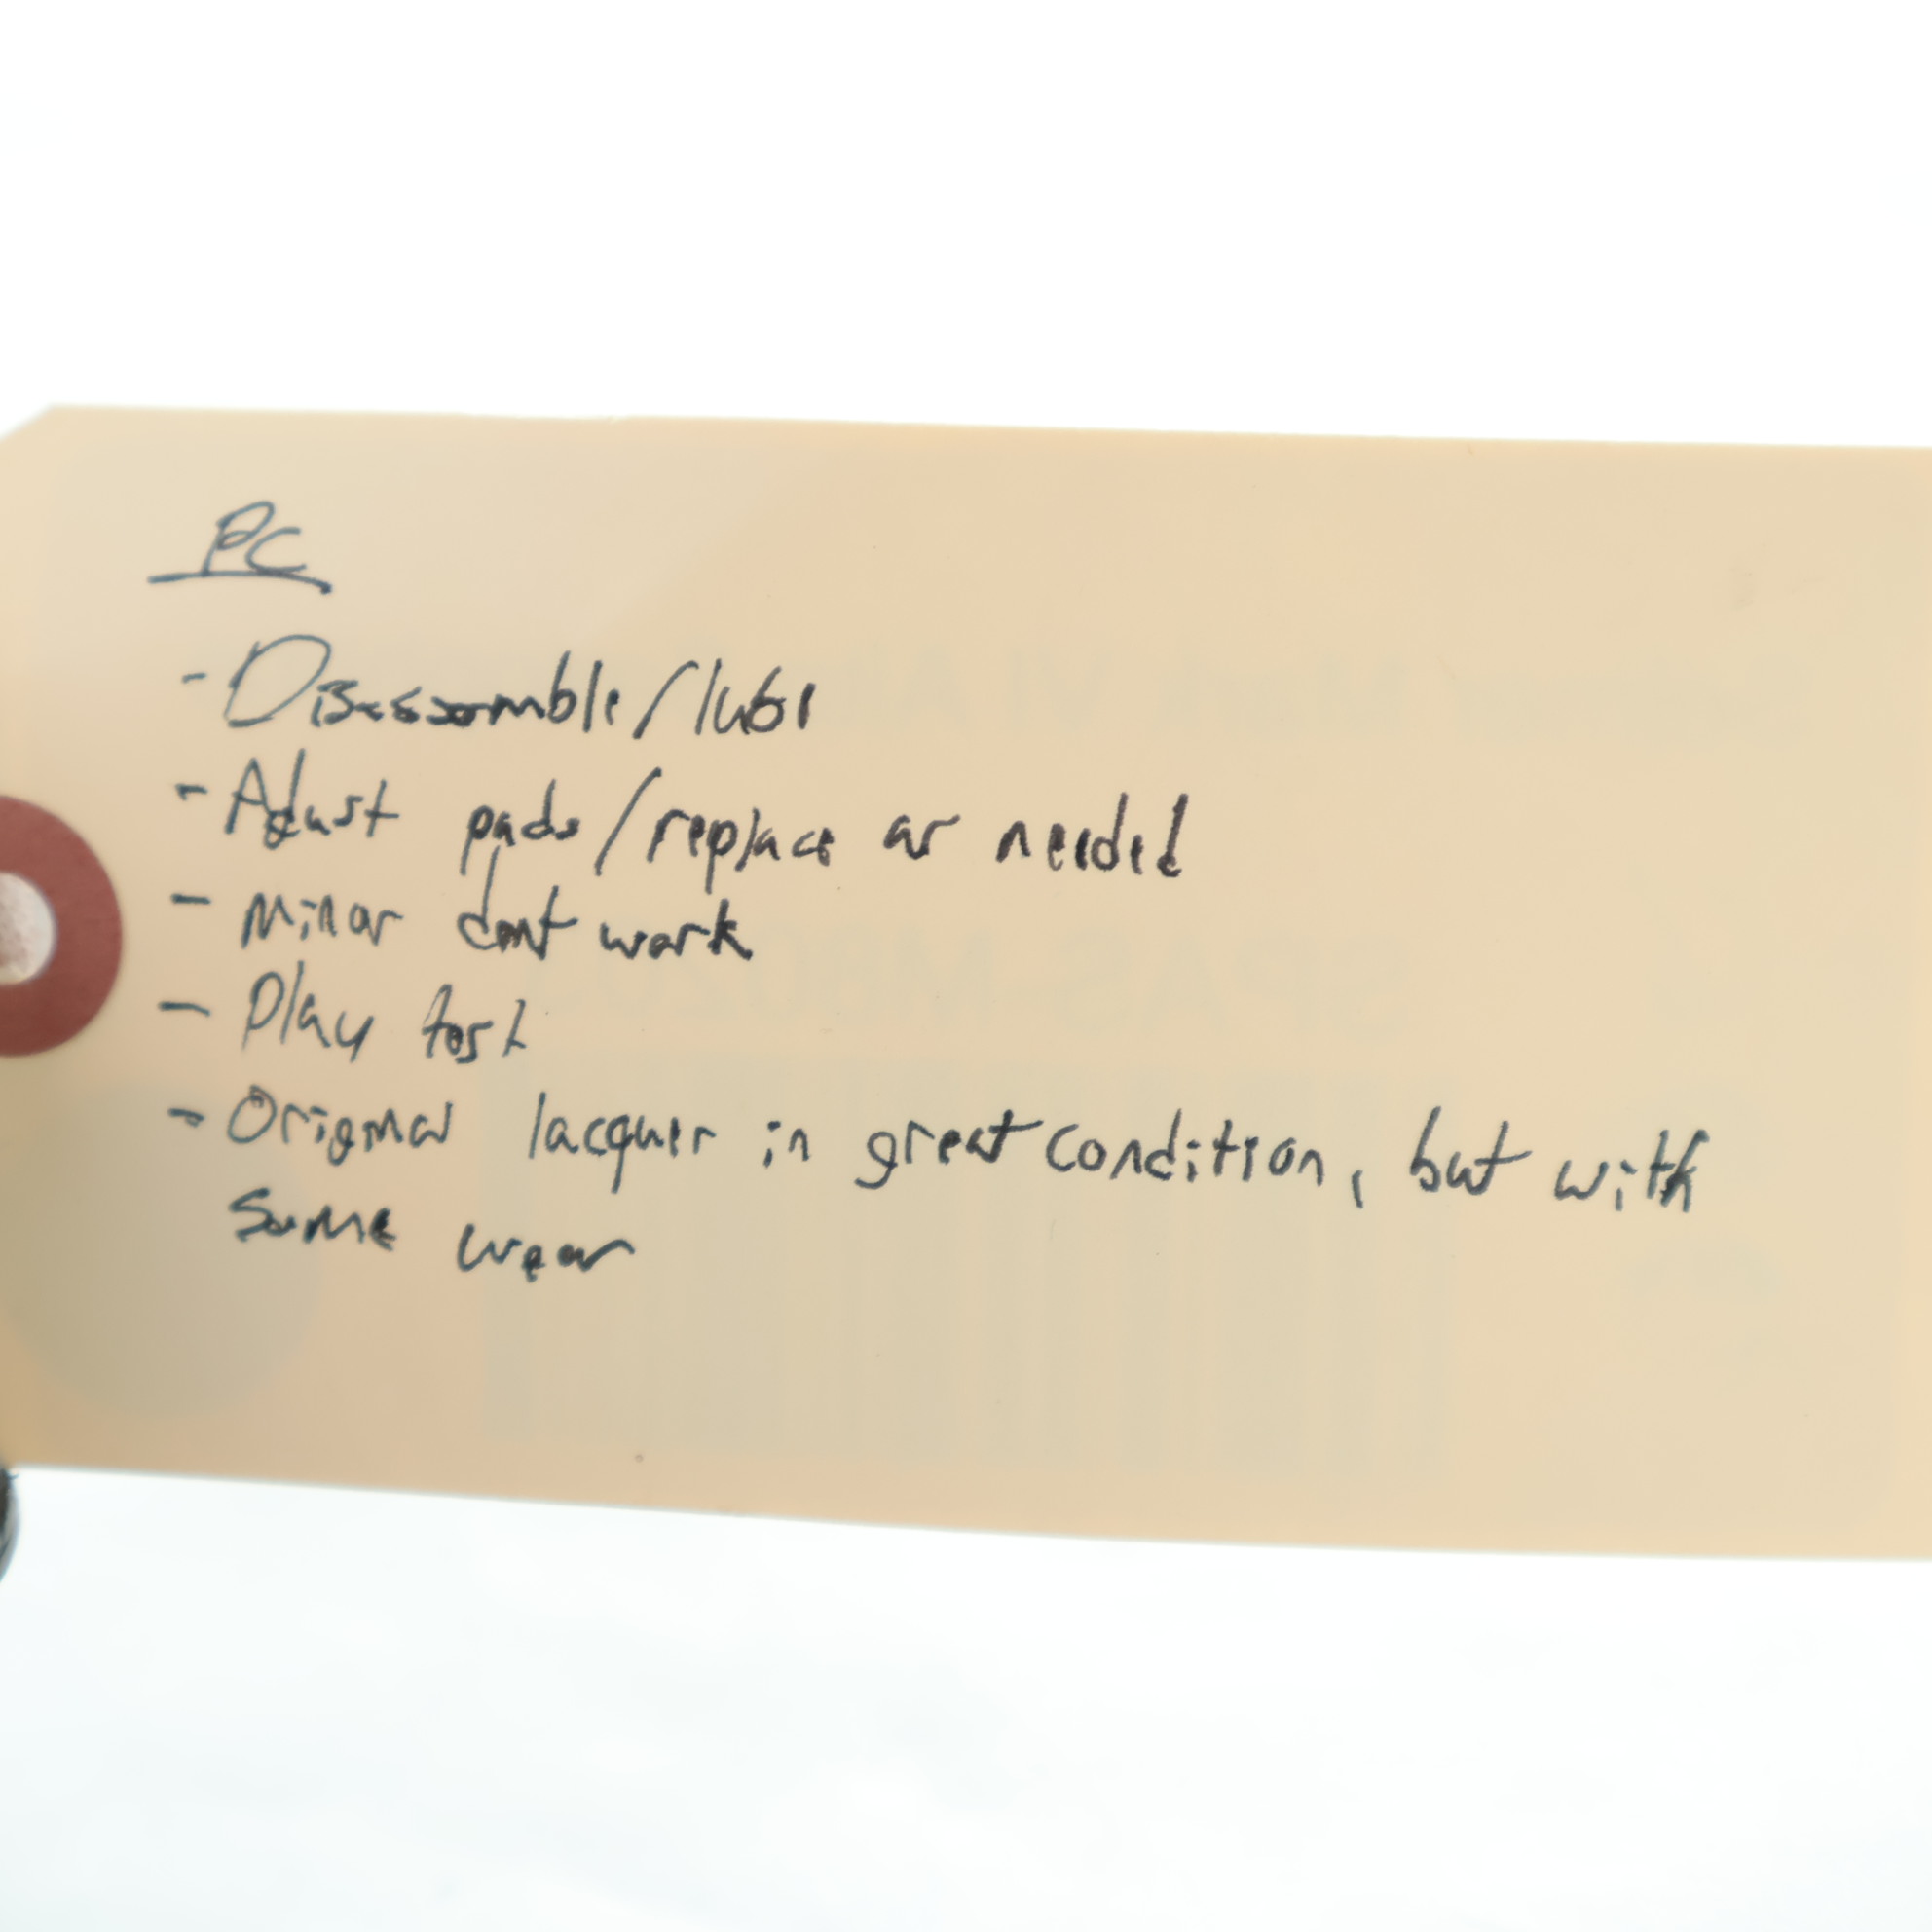 PC
- Disassemble/lube
- Adjust pads/replace as needed
- Minor dent work
- Play test
- Original lacquer in great condition, but with
some wear